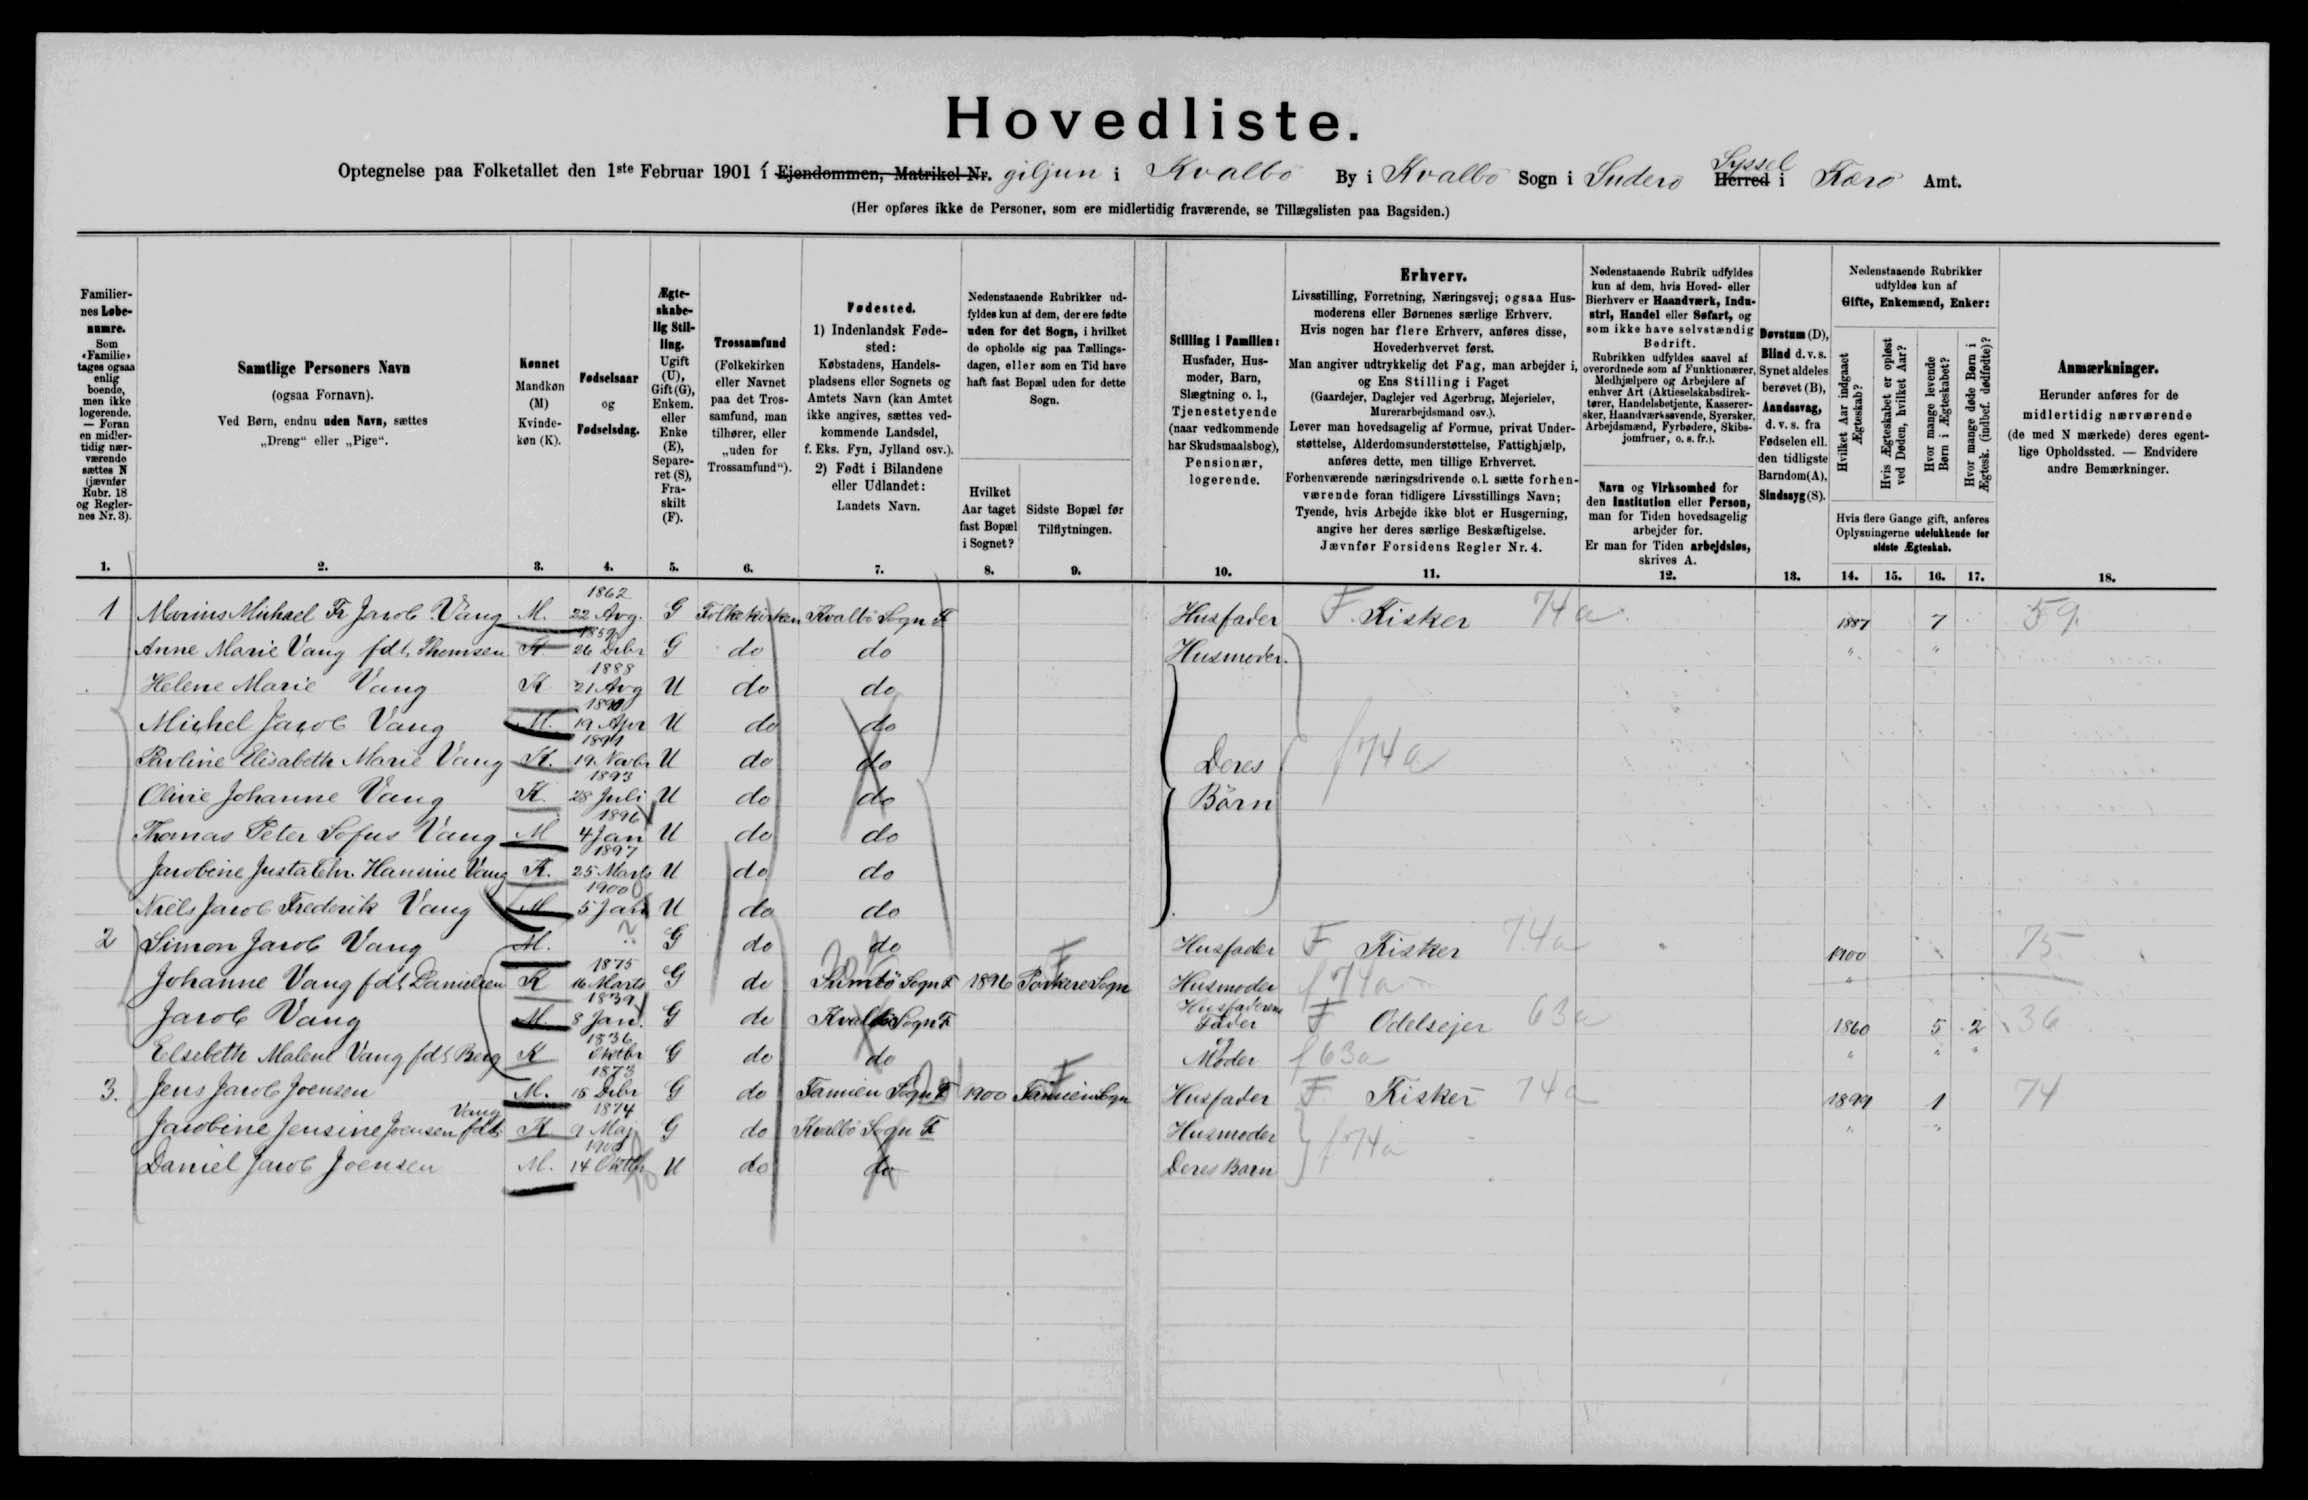 Hovedliste.
Optegnelse paa Folketallet den 1ste Februar 1901 i Ejendommen, Matrikel-Nr. giljun i Kvalbö By i Kvalbö Sogn i Suderö Syssel Herred i Færö Amt.
(Her opføres ikke de Personer, som ere midlertidig fraværende, se Tillægslisten paa Bagsiden.)
Familiernes Løbenumre. Som «Familie» tages ogsaa enlig boende, men ikke logerende. — Foran en midlertidig nærværende sættes N (jævnfør Rubr. 18 og Reglernes Nr. 3).
Samtlige Personers Navn (ogsaa Fornavn). Ved Børn, endnu uden Navn, sættes „Dreng“ eller „Pige“.
Kønnet Mandkøn (M) Kvindekøn (K).
Fødselsaar og Fødselsdag.
Ægteskabelig Stilling. Ugift (U), Gift (G), Enkem. eller Enke (E), Separeret (S), Fraskilt (F).
Trossamfund (Folkekirken eller Navnet paa det Trossamfund, man tilhører, eller „uden for Trossamfund“).
Fødested. 1) Indenlandsk Fødested: Købstadens, Handelspladsens eller Sognets og Amtets Navn (kan Amtet ikke angives, sættes vedkommende Landsdel, f. Eks. Fyn, Jylland osv.). 2) Født i Bilandene eller Udlandet: Landets Navn.
Nedenstaaende Rubrikker udfyldes kun af dem, der ere fødte uden for det Sogn, i hvilket de opholde sig paa Tællingsdagen, eller som en Tid have haft fast Bopæl uden for dette Sogn.
Hvilket Aar taget fast Bopæl i Sognet?
Sidste Bopæl før Tilflytningen.
Stilling i Familien: Husfader, Husmoder, Barn, Slægtning o. l., Tjenestetyende (naar vedkommende har Skudsmaalsbog), Pensionær, logerende.
Erhverv.
Livsstilling, Forretning, Næringsvej; ogsaa Husmoderens eller Børnenes særlige Erhverv.
Hvis nogen har flere Erhverv, anføres disse, Hovederhvervet først.
Man angiver udtrykkelig det Fag, man arbejder i, og Ens Stilling i Faget (Gaardejer, Daglejer ved Agerbrug, Mejerielev, Murerarbejdsmand osv.).
Lever man hovedsagelig af Formue, privat Understøttelse, Alderdomsunderstøttelse, Fattighjælp, anføres dette, men tillige Erhvervet.
Forhenværende næringsdrivende o.l. sætte forhenværende foran tidligere Livsstillings Navn; Tyende, hvis Arbejde ikke blot er Husgerning, angive her deres særlige Beskæftigelse.
Jævnfør Forsidens Regler Nr. 4.
Nedenstaaende Rubrik udfyldes kun af dem, hvis Hoved- eller Bierhverv er Haandværk, Industri, Handel eller Søfart, og som ikke have selvstændig Bedrift.
Rubrikken udfyldes saavel af overordnede som af Funktionærer, Medhjælpere og Arbejdere af enhver Art (Aktieselskabsdirektører, Handelsbetjente, Kasserersker, Haandværkssvende, Syersker, Arbejdsmænd, Fyrbødere, Skibsjomfruer, o. s. fr.).
Navn og Virksomhed for den Institution eller Person, man for Tiden hovedsagelig arbejder for.
Er man for Tiden arbejdsløs, skrives A.
Døvstum (D), Blind d. v. s. Synet aldeles berøvet (B), Aandssvag, d. v. s. fra Fødselen ell. den tidligste Barndom (A), Sindssyg (S).
Nedenstaaende Rubrikker udfyldes kun af Gifte, Enkemænd, Enker:
Hvilket Aar indgaaet Ægteskab?
Hvis Ægteskabet er opløst ved Døden, hvilket Aar?
Hvor mange levende Børn i Ægteskabet?
Hvor mange døde Børn i Ægtesk. (indbef. dødfødte)?
Hvis flere Gange gift, anføres Oplysningerne udelukkende for sidste Ægteskab.
Anmærkninger. Herunder anføres for de midlertidig nærværende (de med N mærkede) deres egentlige Opholdssted. — Endvidere andre Bemærkninger.
1. 2. 3. 4. 5. 6. 7. 8. 9. 10. 11. 12. 13. 14. 15. 16. 17. 18.
1 Marius Michael Fr Jacob Vang M. 1862 22 Avg. G Folkekirken Kvalbö Sogn F Husfader F. Fisker 74a 1887 7 59
Anne Marie Vang fdt. Thomsen K 1859 26 Debr G do do Husmoder. " "
Helene Marie Vang K 1888 21 Avg U do do
Michel Jacob Vang M. 19 Apr U do do
Pavline Elisabeth Marie Vang K. 1891 19 Novbr U do do Deres f74a
Olivie Johanne Vang K 1893 28 Juli U do do Börn
Thomas Peter Sofus Vang M 1896 4 Jan U do do
Jacobine Justa Chr. Hansine Vang K. 1897 25 Marts U do do
Niels Jacob Frederik Vang M 1900 5 Jan U do do
2 Simon Jacob Vang M. ? G do do Husfader F Fisker 74a 1900 75
Johanne Vang fdt Danielsen K 1875 16 Marts G do Sumbö Sogn F 1896 Porkere Sogn F Husmoder f74a "
Jacob Vang M. 1839 8 Jan. G do Kvalbö Sogn F Husfaderens Fader F Odelsejer 63a 1860 5 2 36
Elsebeth Malene Vang fdt Berg K 1836 Oktbr G do do og Moder f63a " " "
3. Jens Jacob Joensen M. 1873 18 Debr G do Famien Sogn F 1900 Famien Sogn F Husfader F Fisker 74a 1899 1 74
Jacobine Jensine Joensen fdt Vang K 1874 9 Maj G do Kvalbö Sogn F Husmoder f74a " "
Daniel Jacob Joensen M. 1900 14 Oktbr U do do Deres Barn